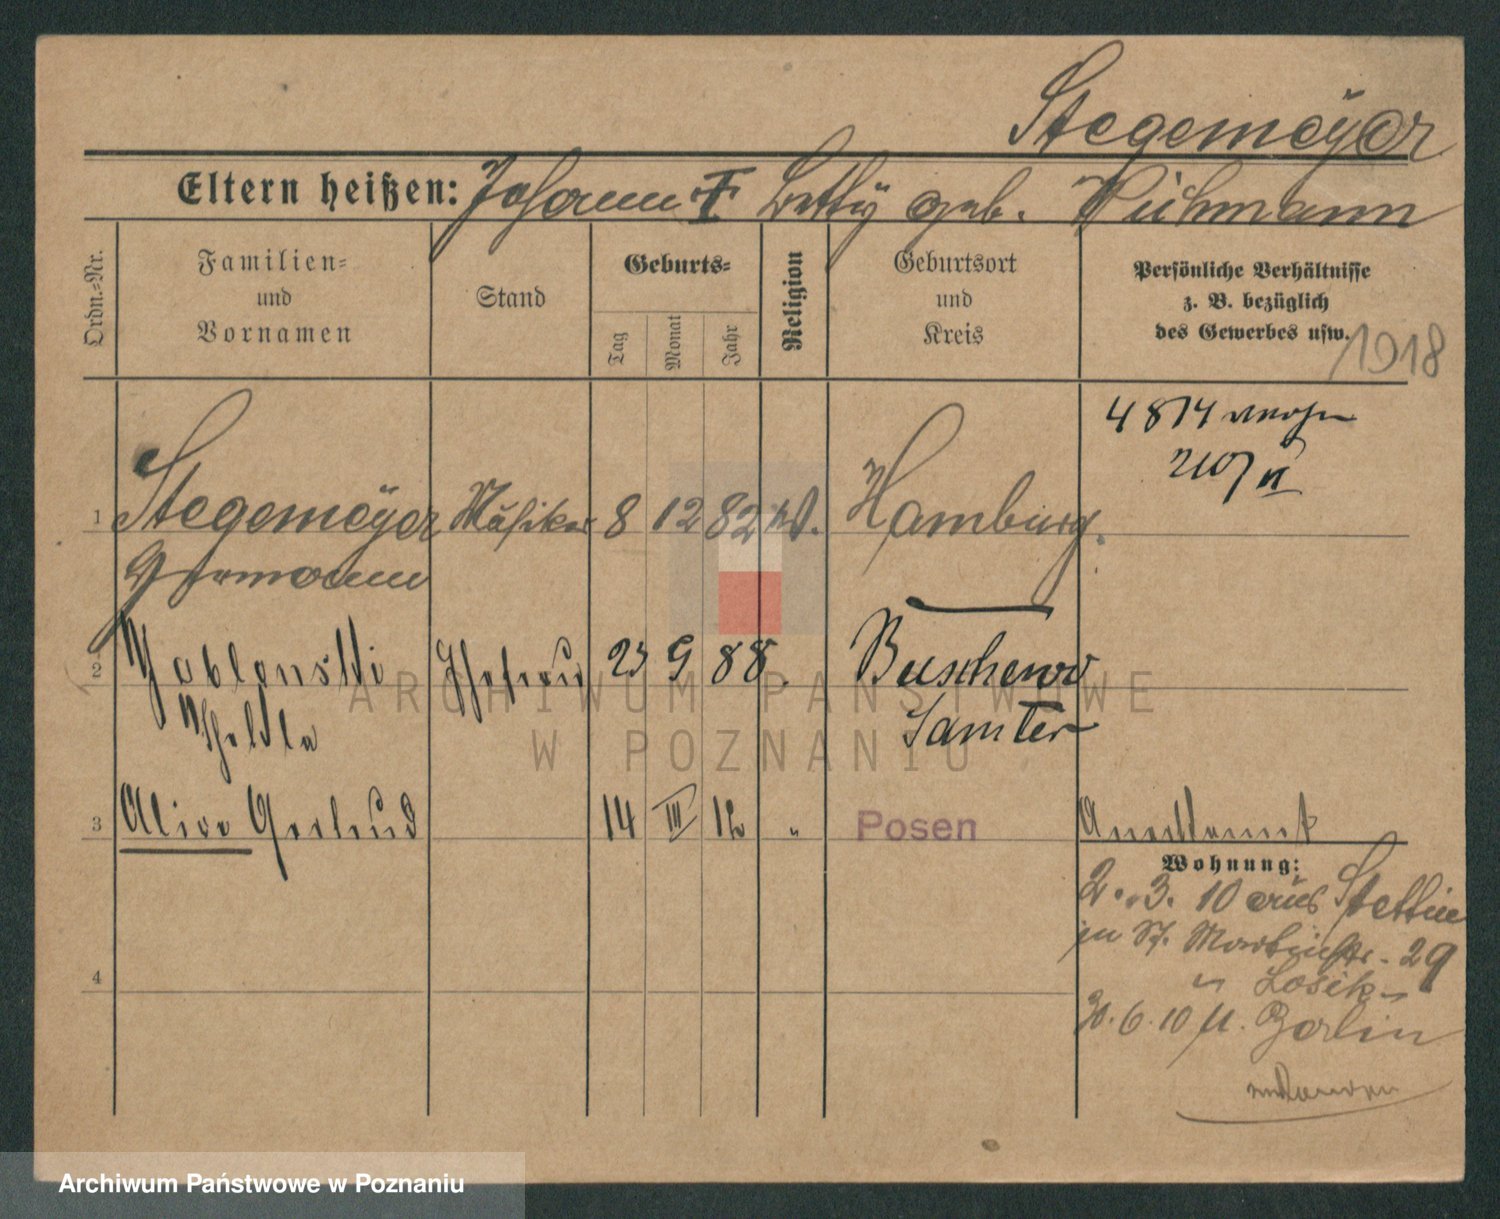 Stegemeÿer
Eltern heißen: Johann † Betty geb. Pühmann
Ordn.-Nr.
Familien-
und
Vornamen
Stand
Geburts-
Tag
Monat
Jahr
Religion
Geburtsort
und
Kreis
Persönliche Verhältnisse
z. B. bezüglich
des Gewerbes usw.
1918
4814
1 Stegemeÿer Musiker 8 12 82 Hamburg.
Hermann
2 Jablonski Ehefrau 23 9 88. Buschewo
Samter
3 Alice Gertrud 14 III 12 " Posen
Wohnung:
2. 3. 10 aus Stettin
in St. Martinstr. 29
4
30. 6. 10 n. Berlin
ARCHIWUM PAŃSTWOWE
W POZNANIU
Archiwum Państwowe w Poznaniu